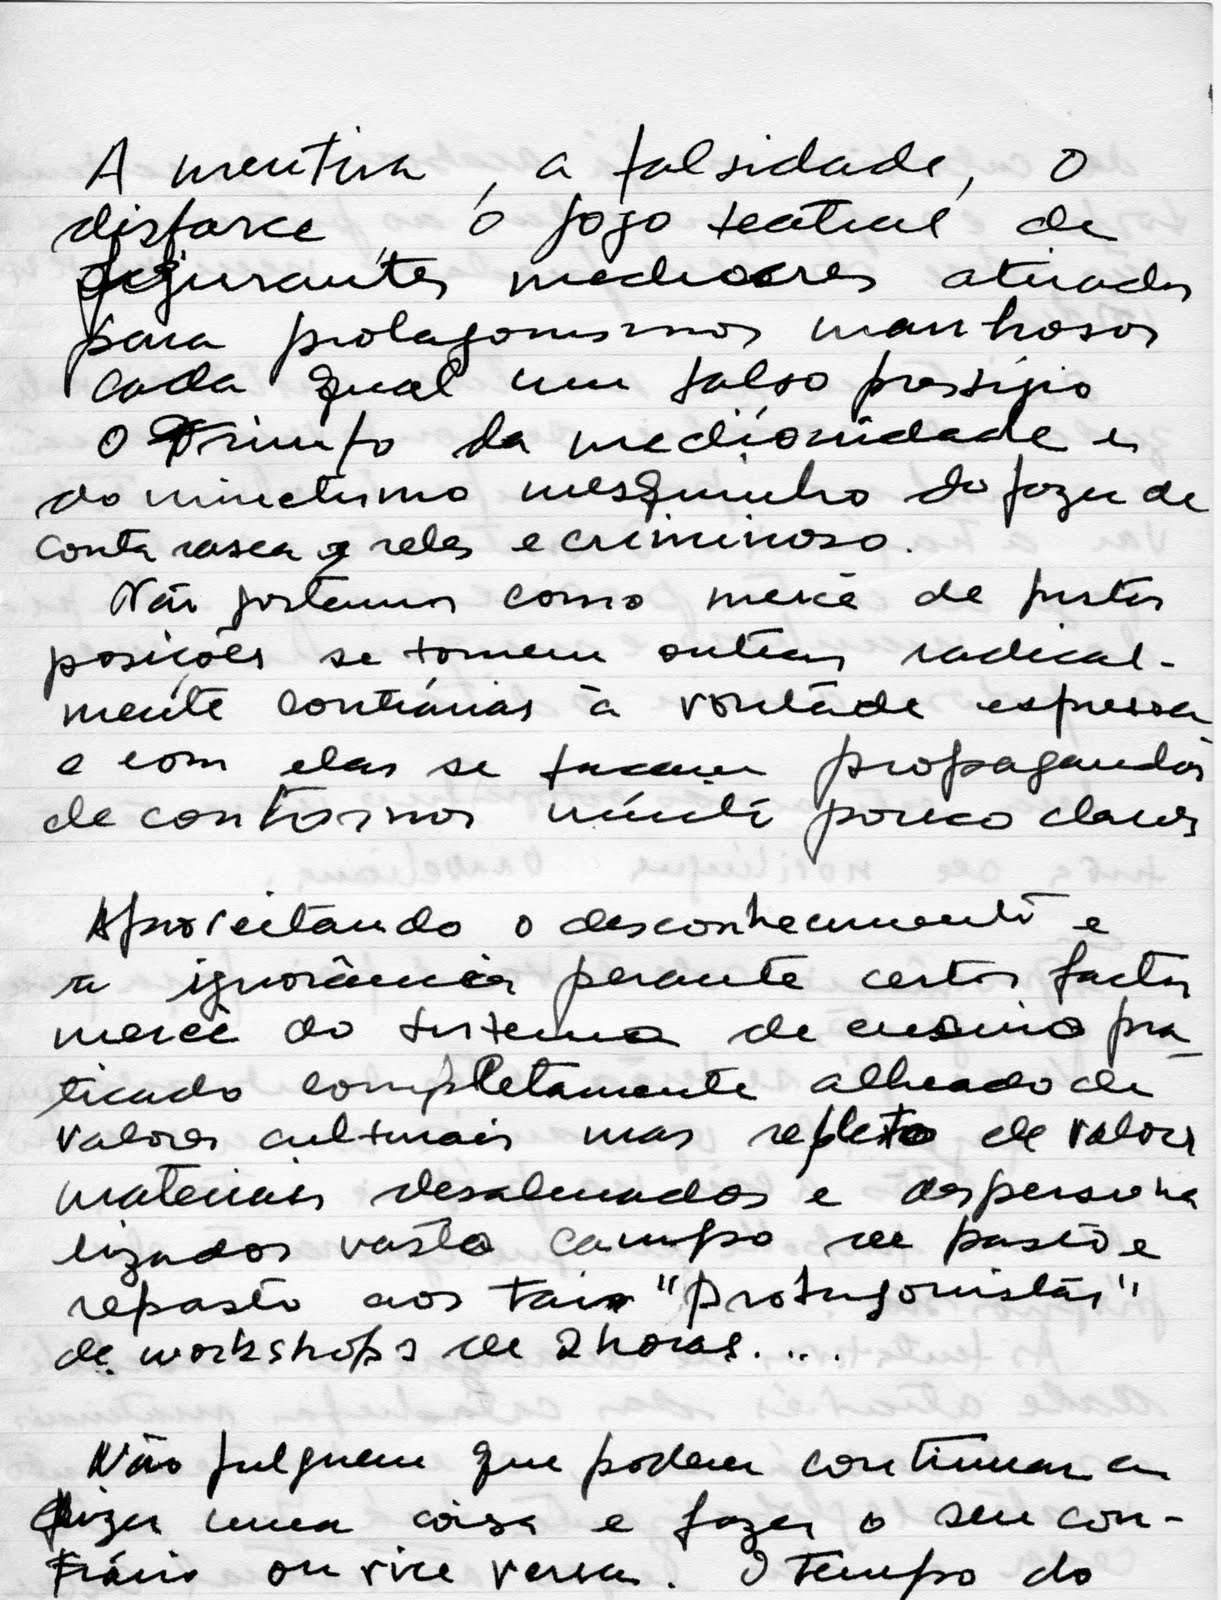 A mentira, a falsidade, o
disfarce, o jogo teatral de
figurantes mediocres atirados
para protagonismos manhosos
cada qual um falso prestigio
O Triunfo da mediocridade e
do mimetismo mesquinho do fazer de
conta rasca e reles e criminoso.
Não gostamos como mercê de justas
posições se tomem outras radical-
mente contrárias à vontade expressa
e com elas se façam propagandas
de contornos muito pouco claros
Aproveitando o desconhecimento e
a ignorância perante certos factos
mercê do sistema de ensino pra-
ticado completamente alheado de
valores culturais mas repleto de valores
materiais desalmados e despersona
lizados vasto campo de pasto e
repasto aos tais "protagonistas"
de workshops de 2 horas....
Não julguem que podem continuar a
dizer uma coisa e fazer o seu con-
trário ou vice versa. O tempo do